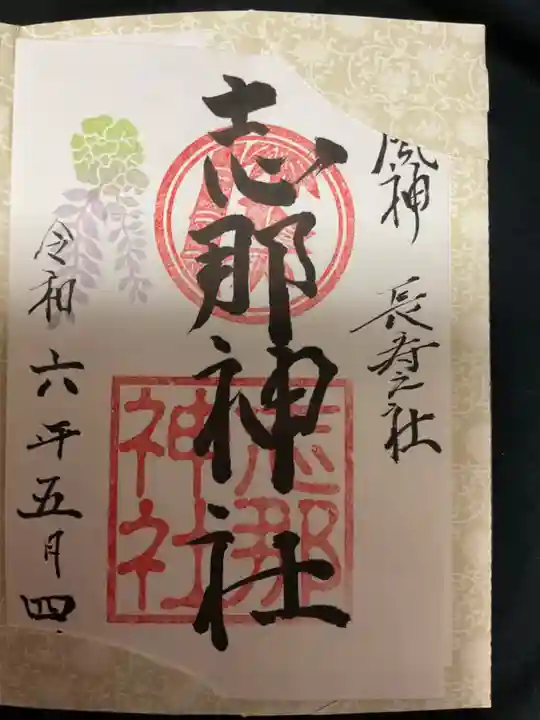 風神　長寿之社
志那神社
志那
神社
令和六年五月四